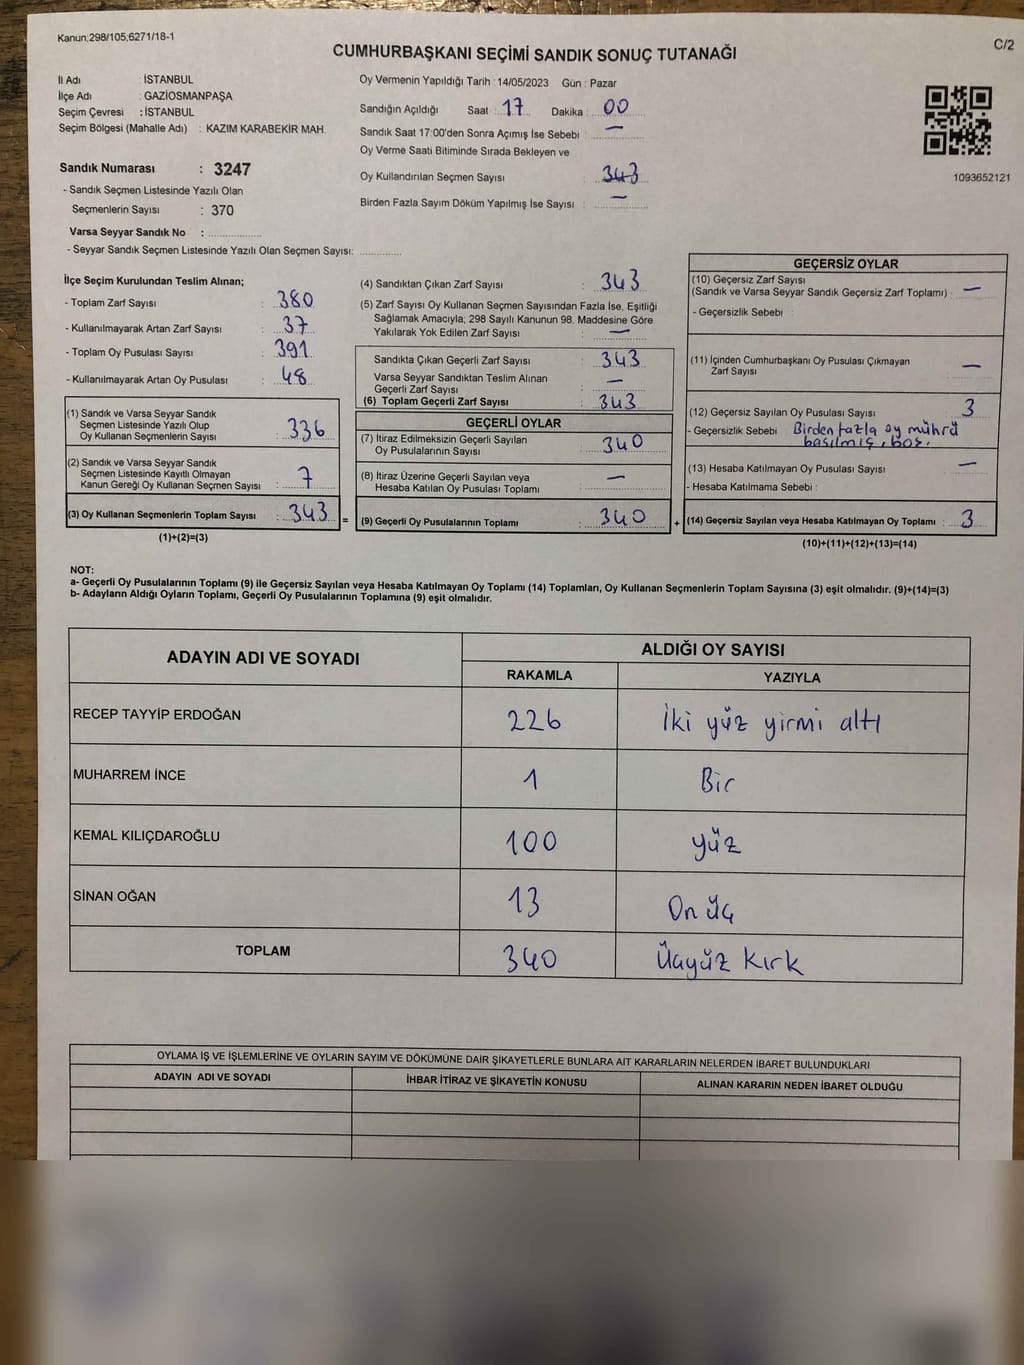 Kanun;298/105,6271/18-1
C/2
CUMHURBAŞKANI SEÇİMİ SANDIK SONUÇ TUTANAĞI
İl Adı : İSTANBUL
İlçe Adı : GAZİOSMANPAŞA
Seçim Çevresi : İSTANBUL
Seçim Bölgesi (Mahalle Adı) : KAZIM KARABEKİR MAH.
Oy Vermenin Yapıldığı Tarih : 14/05/2023 Gün : Pazar
Sandığın Açıldığı Saat : 17 Dakika : 00
Sandık Saat 17:00'den Sonra Açımış İse Sebebi : —
Oy Verme Saati Bitiminde Sırada Bekleyen ve
Oy Kullandırılan Seçmen Sayısı : 343
Birden Fazla Sayım Döküm Yapılmış İse Sayısı : —
1093652121
Sandık Numarası : 3247
- Sandık Seçmen Listesinde Yazılı Olan
Seçmenlerin Sayısı : 370
Varsa Seyyar Sandık No :
- Seyyar Sandık Seçmen Listesinde Yazılı Olan Seçmen Sayısı:
İlçe Seçim Kurulundan Teslim Alınan;
- Toplam Zarf Sayısı : 380
- Kullanılmayarak Artan Zarf Sayısı : 37
- Toplam Oy Pusulası Sayısı : 391
- Kullanılmayarak Artan Oy Pusulası : 48
(1) Sandık ve Varsa Seyyar Sandık
Seçmen Listesinde Yazılı Olup
Oy Kullanan Seçmenlerin Sayısı : 336
(2) Sandık ve Varsa Seyyar Sandık
Seçmen Listesinde Kayıtlı Olmayan
Kanun Gereği Oy Kullanan Seçmen Sayısı : 7
(3) Oy Kullanan Seçmenlerin Toplam Sayısı : 343 =
(1)+(2)=(3)
(4) Sandıktan Çıkan Zarf Sayısı : 343
(5) Zarf Sayısı Oy Kullanan Seçmen Sayısından Fazla İse, Eşitliği
Sağlamak Amacıyla; 298 Sayılı Kanunun 98. Maddesine Göre
Yakılarak Yok Edilen Zarf Sayısı : —
Sandıkta Çıkan Geçerli Zarf Sayısı : 343
Varsa Seyyar Sandıktan Teslim Alınan
Geçerli Zarf Sayısı : —
(6) Toplam Geçerli Zarf Sayısı : 343
GEÇERLİ OYLAR
(7) İtiraz Edilmeksizin Geçerli Sayılan
Oy Pusulalarının Sayısı : 340
(8) İtiraz Üzerine Geçerli Sayılan veya
Hesaba Katılan Oy Pusulası Toplamı : —
(9) Geçerli Oy Pusulalarının Toplamı : 340 +
GEÇERSİZ OYLAR
(10) Geçersiz Zarf Sayısı
(Sandık ve Varsa Seyyar Sandık Geçersiz Zarf Toplamı) : —
- Geçersizlik Sebebi :
(11) İçinden Cumhurbaşkanı Oy Pusulası Çıkmayan
Zarf Sayısı : —
(12) Geçersiz Sayılan Oy Pusulası Sayısı : 3
- Geçersizlik Sebebi : Birden fazla oy mührü
basılmış, boş.
(13) Hesaba Katılmayan Oy Pusulası Sayısı : —
- Hesaba Katılmama Sebebi :
(14) Geçersiz Sayılan veya Hesaba Katılmayan Oy Toplamı : 3
(10)+(11)+(12)+(13)=(14)
NOT:
a- Geçerli Oy Pusulalarının Toplamı (9) ile Geçersiz Sayılan veya Hesaba Katılmayan Oy Toplamı (14) Toplamları, Oy Kullanan Seçmenlerin Toplam Sayısına (3) eşit olmalıdır. (9)+(14)=(3)
b- Adayların Aldığı Oyların Toplamı, Geçerli Oy Pusulalarının Toplamına (9) eşit olmalıdır.
ADAYIN ADI VE SOYADI
ALDIĞI OY SAYISI
RAKAMLA YAZIYLA
RECEP TAYYİP ERDOĞAN 226 İki yüz yirmi altı
MUHARREM İNCE 1 Bir
KEMAL KILIÇDAROĞLU 100 yüz
SİNAN OĞAN 13 On üç
TOPLAM 340 Üçyüz kırk
OYLAMA İŞ VE İŞLEMLERİNE VE OYLARIN SAYIM VE DÖKÜMÜNE DAİR ŞİKAYETLERLE BUNLARA AİT KARARLARIN NELERDEN İBARET BULUNDUKLARI
ADAYIN ADI VE SOYADI İHBAR İTİRAZ VE ŞİKAYETİN KONUSU ALINAN KARARIN NEDEN İBARET OLDUĞU